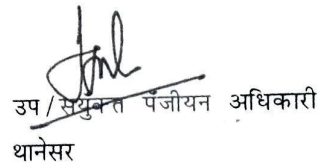 उप / सयुक्त पंजीयन अधिकारी
थानेसर